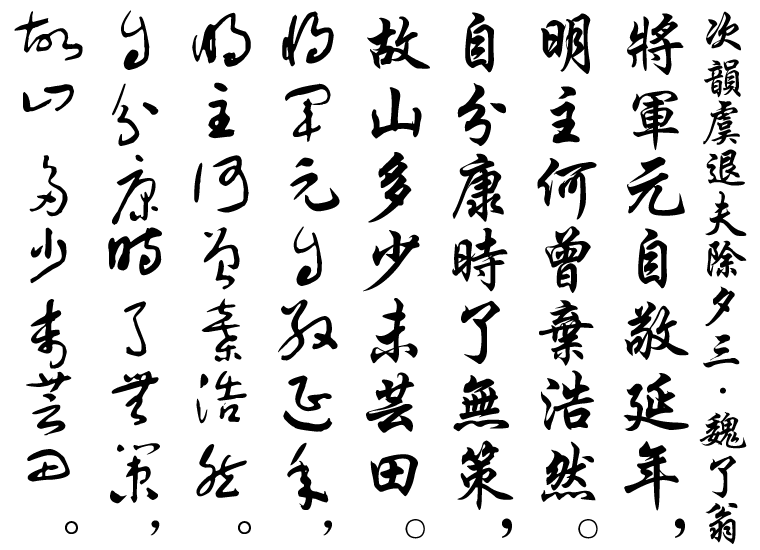 次韻虞退夫除夕三·魏了翁
將軍元自敬延年，
明主何曾棄浩然。
自分康時了無策，
故山多少未芸田。
將軍元自敬延年，
明主何曾棄浩然。
自分康時了無策，
故山多少未芸田。